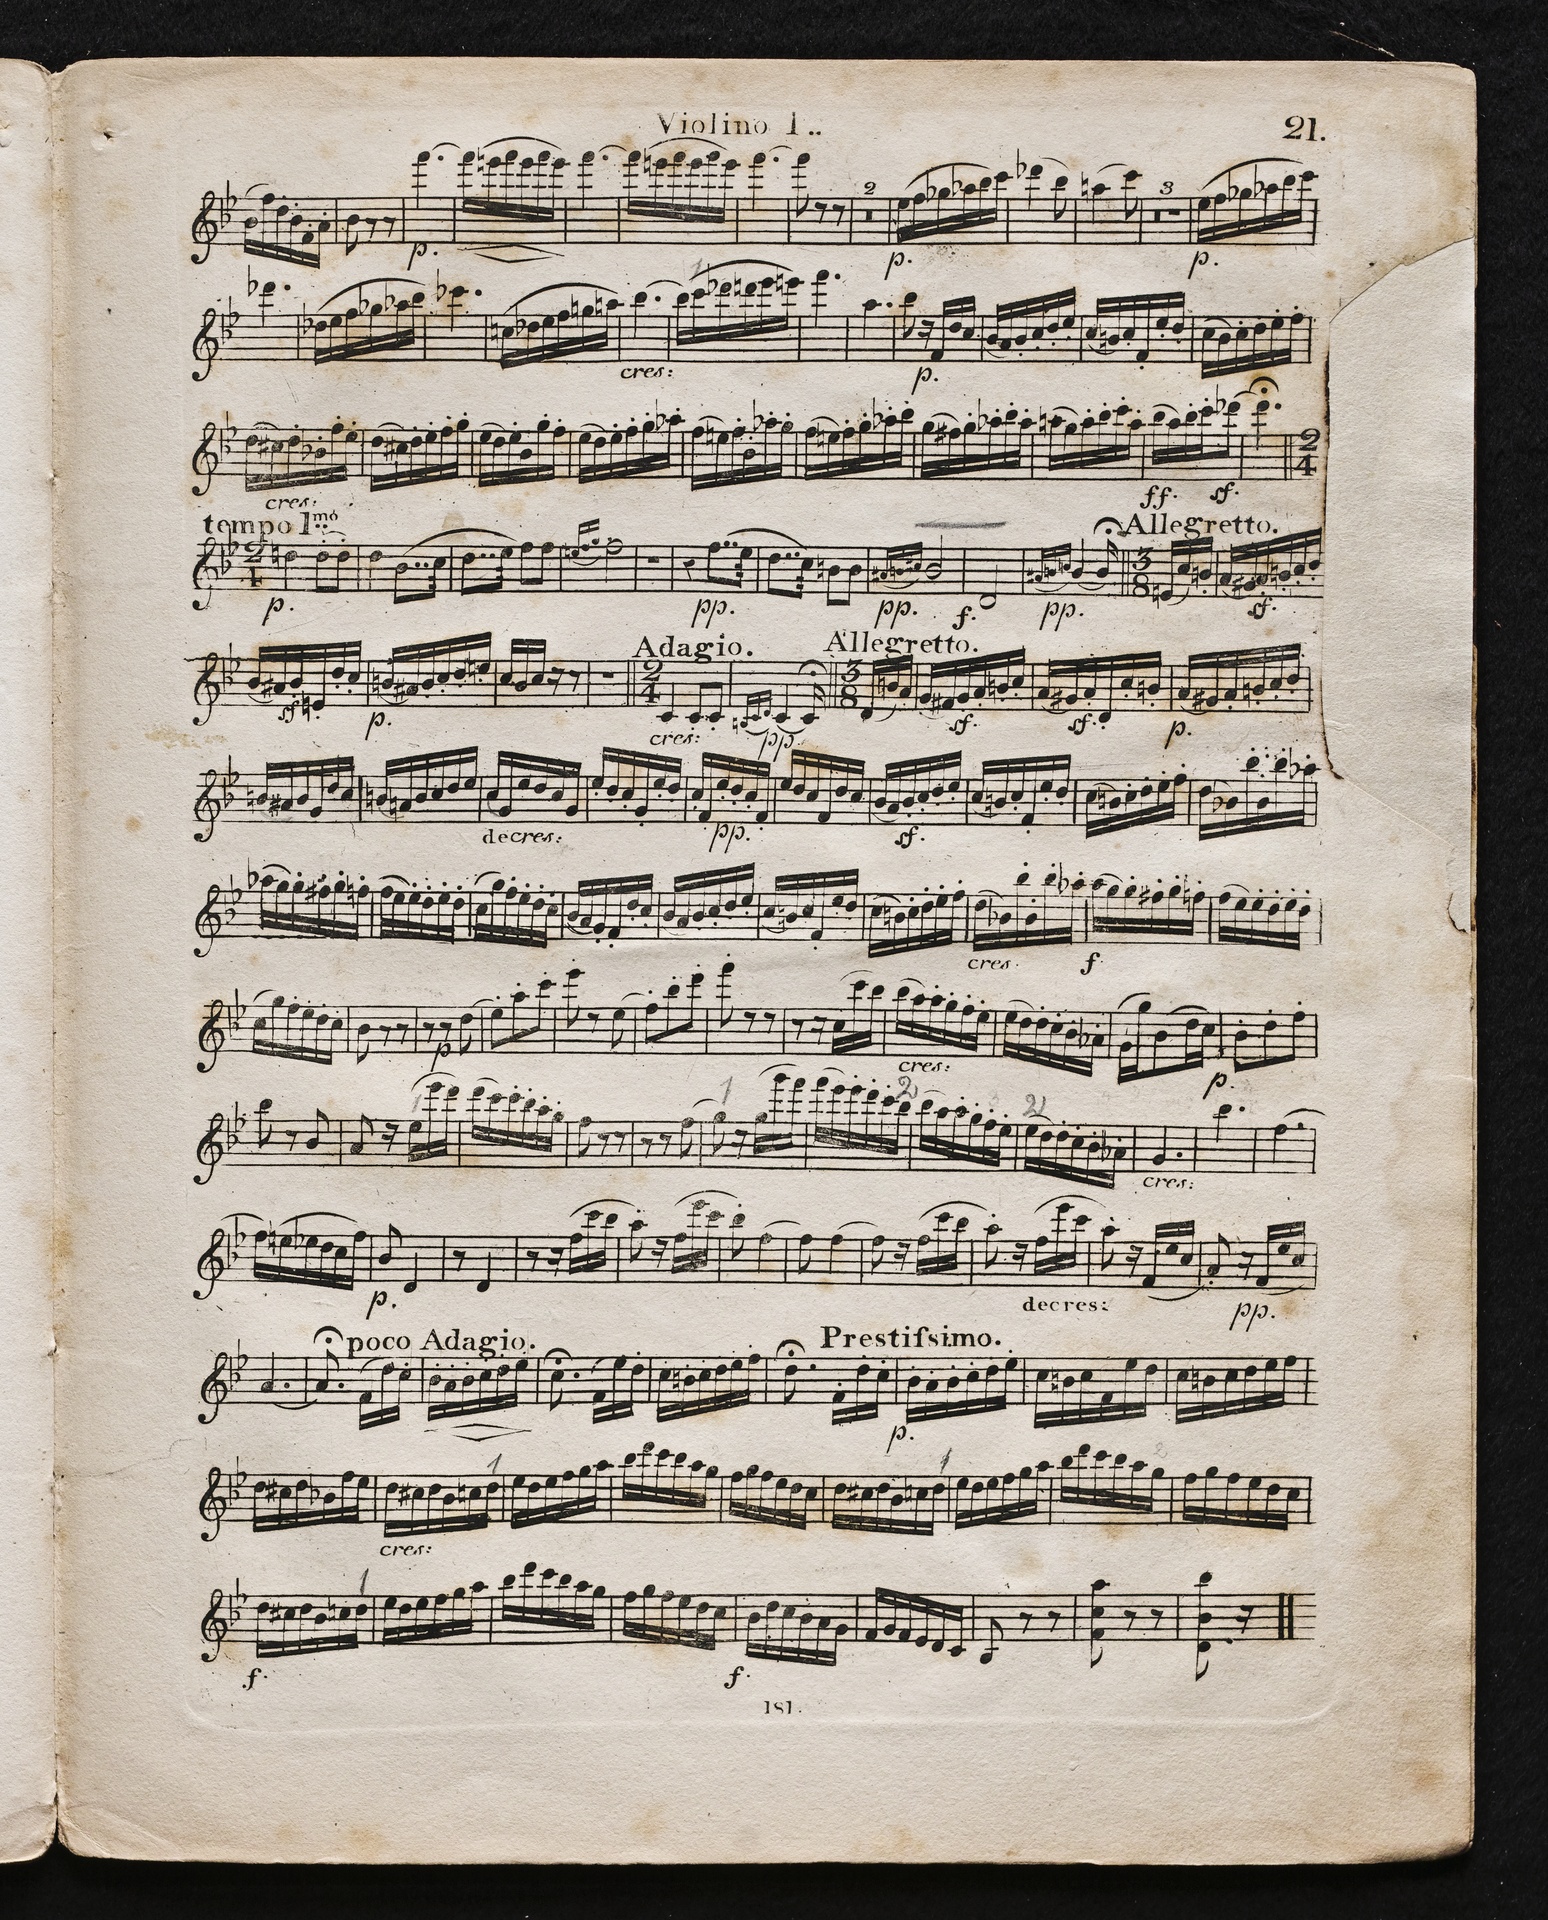 Violino 1.. 21.
2 3
p. p. p.
cres: p.
2 4
cres: ff. sf.
tempo 1mo Allegretto.
2 4 3 8
p. pp. pp. f. pp. sf.
Adagio. Allegretto.
2 4 3 8
sf p. cres: pp. sf. sf. p.
decres: pp. sf.
cres. f.
p cres: p.
1 1 2 2
cres:
p. decres: pp.
poco Adagio. Prestiſsimo.
p.
1 1 2
cres:
1
f. f.
181.